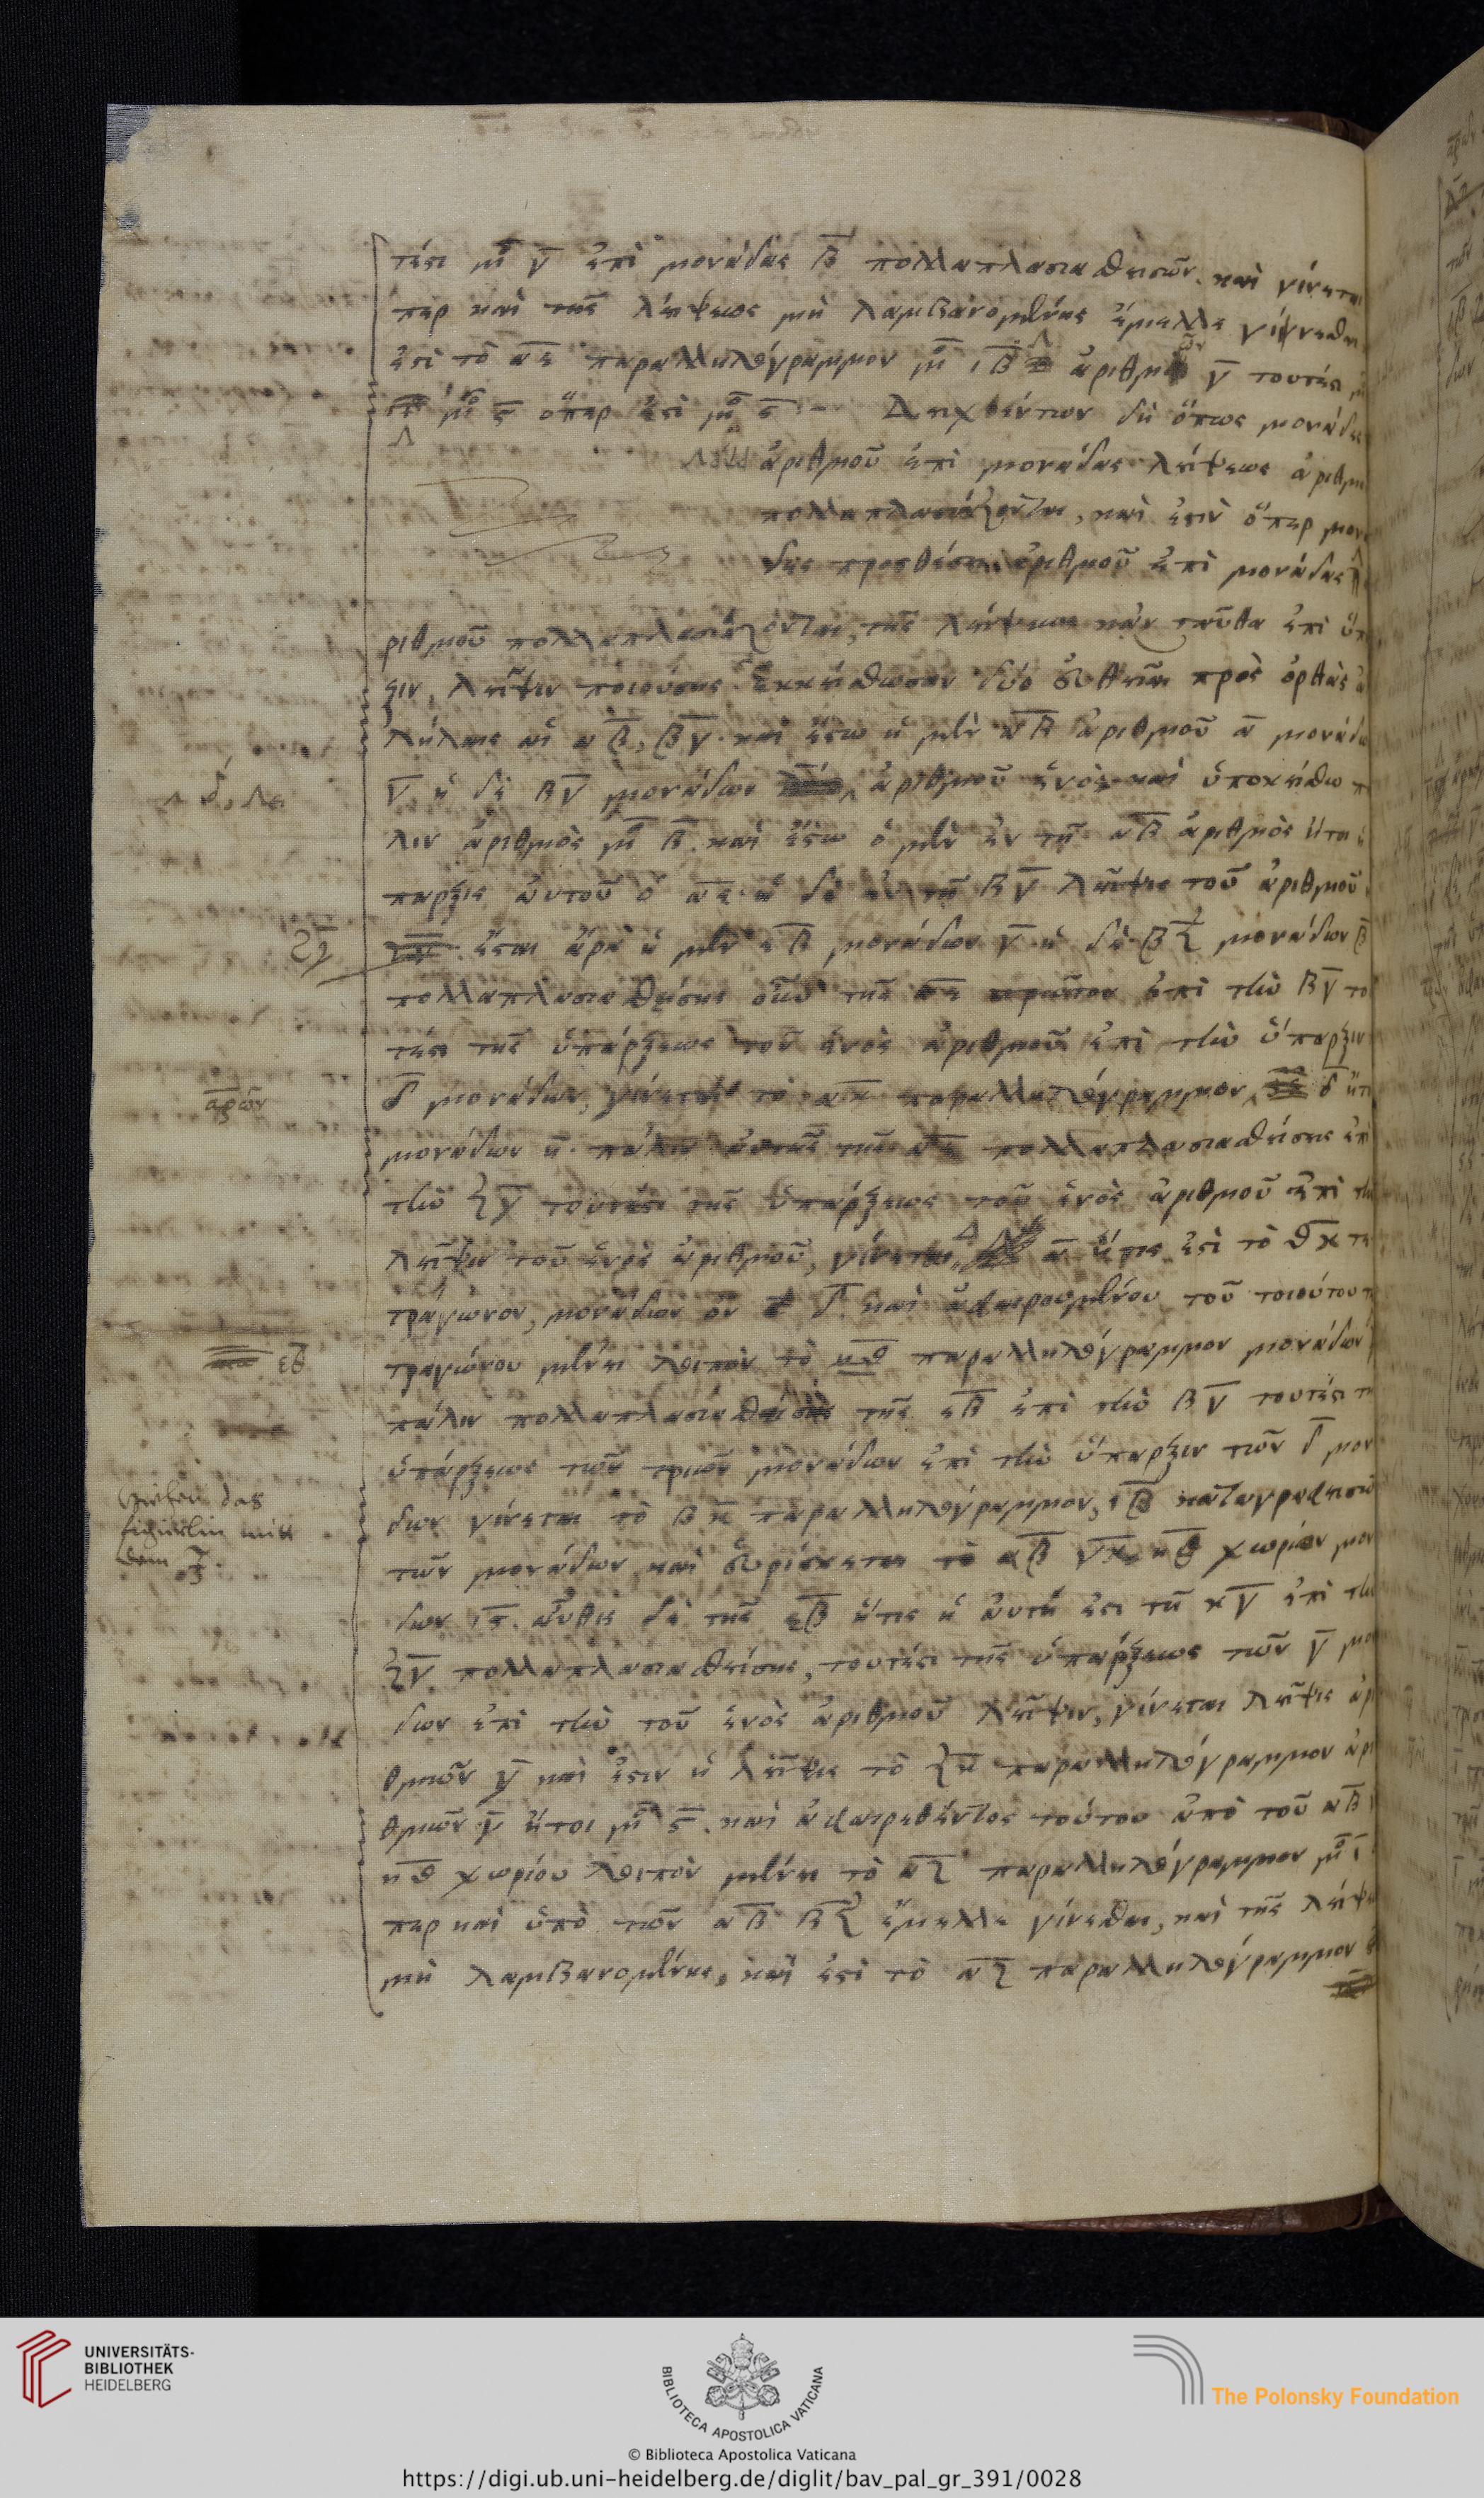 τέστι μο γ ἐπὶ μονάδας β πολλαπλασιασθεισῶν. καὶ γίνεται
περ καὶ τῆς λείψεως μὴ λαμβανομένης ἔμελλε γίνεσθαι
ἐστὶ τὸ αε παραλληλόγραμμον μο ιβ ἀριθμῶν γ τουτέστι
μο ς ὅπερ ἐστὶ μο ς :- Δειχθέντων δὴ ὅπως μονάδες
ἀριθμοῦ ἐπὶ μονάδας λείψεως ἀριθμοῦ
πολλαπλασιάζονται, καὶ ἐστιν ὅπερ μονά
δες προσθέσει ἀριθμοῦ ἐπὶ μονάδας
ριθμοῦ πολλαπλασιάζονται, τῆς λείψεως κἀνταῦθα ἐπὶ ὕπ
ξιν, λεῖψιν ποιούσης ἐκκείσθωσαν δύο εὐθεῖαι πρὸς ὀρθὰς ἀ
λήλαις αἱ αβ, βγ. καὶ ἔστω ἡ μὲν αβ ἀριθμοῦ α μονάδων
γ ἡ δὲ βγ μονάδων ἀριθμοῦ ἑνός. καὶ ὑποκείσθω π
λδ, λει
λιν ἀριθμὸς μο β. καὶ ἔστω ὁ μὲν ἐν τῇ αβ ἀριθμὸς ἤτοι
παρξις αὐτοῦ ὁ αε. ἡ δὲ ἐν τῇ βγ λεῖψις τοῦ ἀριθμοῦ
ζγ
ἔσται ἄρα ἡ μὲν εβ μονάδων γ ἡ δὲ βζ μονάδων β
πολλαπλασιασθείσης οὖν τῆς αε ἐπὶ τὴν βγ το
τέστι τῆς ὑπάρξεως τοῦ ἑνὸς ἀριθμοῦ ἐπὶ τὴν ὕπαρξιν
ἀριθμῶν
δ μονάδων, γίνεται τὸ ακ παραλληλόγραμμον δ ἤτοι
μονάδων η. πάλιν αὐτῆς τῆς αε πολλαπλασιασθείσης ἐπὶ
τὴν ζγ τουτέστι τῆς ὑπάρξεως τοῦ ἑνὸς ἀριθμοῦ ἐπὶ τὴν
λεῖψιν τοῦ ἑνὸς ἀριθμοῦ, γίνεται α ἥτις ἐστὶ τὸ θκ τε
τράγωνον, μονάδων ὂν δ. καὶ ἀφαιρουμένου τοῦ τοιούτου τε
εθ
τραγώνου μένει λοιπὸν τὸ κθ παραλληλόγραμμον μονάδων
πάλιν πολλαπλασιασθείσης τῆς εβ ἐπὶ τὴν βγ τουτέστι τῆς
ὑπάρξεως τῶν τριῶν μονάδων ἐπὶ τὴν ὕπαρξιν τῶν δ μον
δων γίνεται τὸ βκ παραλληλόγραμμον, ιβ καταγραφεισῶν
das
figürlin mitt
dem ζ.
τῶν μονάδων, καὶ εὑρίσκεται τὸ αβ γκ κθ χωρίον μον
δων ις. αὖθις δὲ τῆς εβ ἥτις ἡ αὐτή ἐστι τῇ κγ ἐπὶ τὴν
ζγ πολλαπλασιασθείσης, τουτέστι τῆς ὑπάρξεως τῶν γ μο
δων ἐπὶ τὴν τοῦ ἑνὸς ἀριθμοῦ λεῖψιν, γίνεται λεῖψις ἀρ
θμῶν γ καὶ ἔστιν ἡ λεῖψις τὸ ζκ παραλληλόγραμμον ἀρι
θμῶν γ ἤτοι μο ς. καὶ ἀφαιρεθέντος τούτου ἀπὸ τοῦ αβ
κθ χωρίου λοιπὸν μένει τὸ αζ παραλληλόγραμμον μο ι
περ καὶ ὑπὸ τῶν αβ βζ ἔμελλε γίνεσθαι, καὶ τῆς λείψε
μὴ λαμβανομένης, καὶ ἐστὶ τὸ αζ παραλληλόγραμμον
UNIVERSITÄTS-
BIBLIOTHEK
HEIDELBERG
BIBLIOTECA APOSTOLICA VATICANA
The Polonsky Foundation
© Biblioteca Apostolica Vaticana
https://digi.ub.uni-heidelberg.de/diglit/bav_pal_gr_391/0028